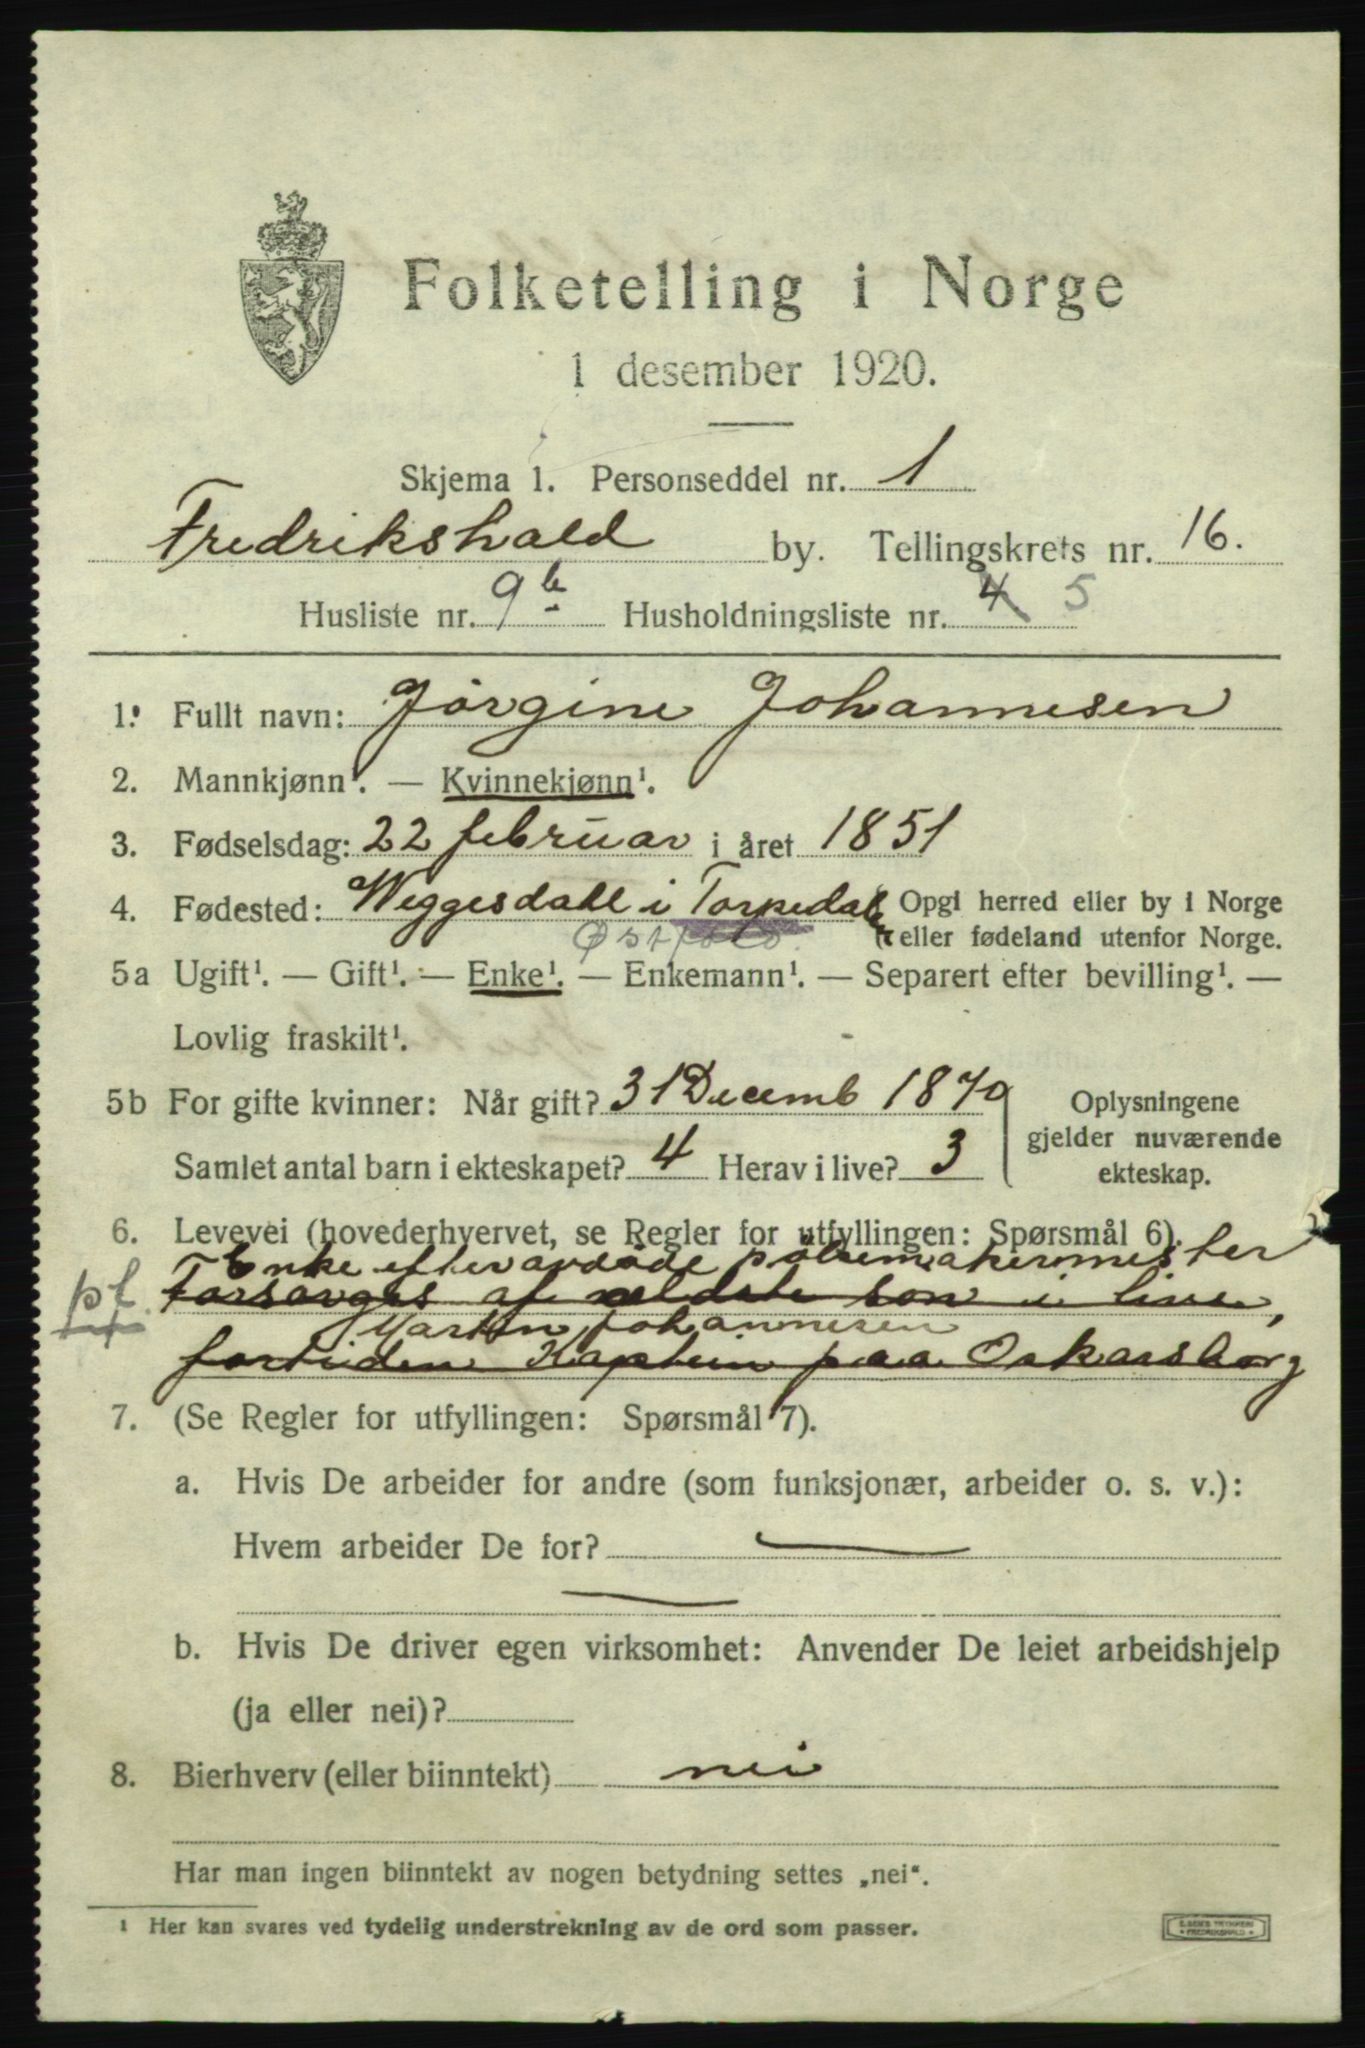 Folketelling i Norge
1 desember 1920.
Skjema 1. Personseddel nr. 1
Fredrikshald by. Tellingskrets nr. 16.
Husliste nr. 9b Husholdningsliste nr. 4 5
1. Fullt navn: Jørgine Johannesen
2. Mannkjønn¹. — Kvinnekjønn¹.
3. Fødselsdag: 22 februar i året 1851
4. Fødested: Weggesdahl i Torpedalen Opgi herred eller by i Norge
Østfold. eller fødeland utenfor Norge.
5a Ugift¹. — Gift¹. — Enke¹. — Enkemann¹. — Separert efter bevilling¹. —
Lovlig fraskilt¹.
5b For gifte kvinner: Når gift? 31 Decemb 1870 Oplysningene
gjelder nuværende
Samlet antal barn i ekteskapet? 4 Herav i live? 3 ekteskap.
6. Levevei (hovederhvervet, se Regler for utfyllingen: Spørsmål 6).
Enke efter avdøde pølsemakermester
Forsørges af ældste søn i live,
Martin Johannesen
fortiden Kaptein paa Oskarsborg
7. (Se Regler for utfyllingen: Spørsmål 7).
a. Hvis De arbeider for andre (som funksjonær, arbeider o. s. v.):
Hvem arbeider De for? —
—
b. Hvis De driver egen virksomhet: Anvender De leiet arbeidshjelp
(ja eller nei)?
8. Bierhverv (eller biinntekt) nei
Har man ingen biinntekt av nogen betydning settes „nei“.
¹ Her kan svares ved tydelig understrekning av de ord som passer.